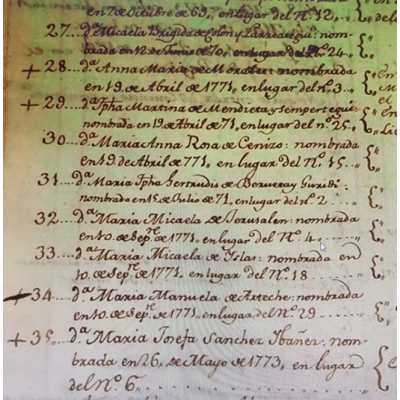 en 7 de Octubre de 69, en lugar del N.º 12
27....d.ª Micaela Brigida de Colon y Larreategui: nom-
brada en 12 de Junio de 70, en lugar del N.º 24.
+ 28....d.ª Anna Maria de : nombrada
en 19 de Abril de 1771, en lugar del n.º 3...
+ 29....d.ª Jpha Martina de Mendieta y Sempertegui:
nombrada en 19 de Abril de 71, en lugar del n.º 25.
30....d.ª Maria Anna Rosa de Cenizo: nombrada
en 19 de Abril de 771, en lugar del N.º 15...
31....d.ª Maria Jpha Gertrudis de Berueray Guridi:
nombrada en 15 de Julio de 71, en lugar del n.º 2
32....d.ª Maria Micaela de Jerusalen: nombrada
en 10. de Sep.re de 1771, en lugar del N.º 4....
33....d.ª Maria Micaela de Islar: nombrada en
10. de Sep.re de 1771, en lugar del N.º 18
+ 34....d.ª Maria Manuela de Arteche: nombrada
en 10. de Sep.re de 1771, en lugar del N.º 29
+ 35...d.ª Maria Josefa Sanchez Ibañez: nom-
brada en 26, de Mayo de 1773, en lugar
del N.º 6.